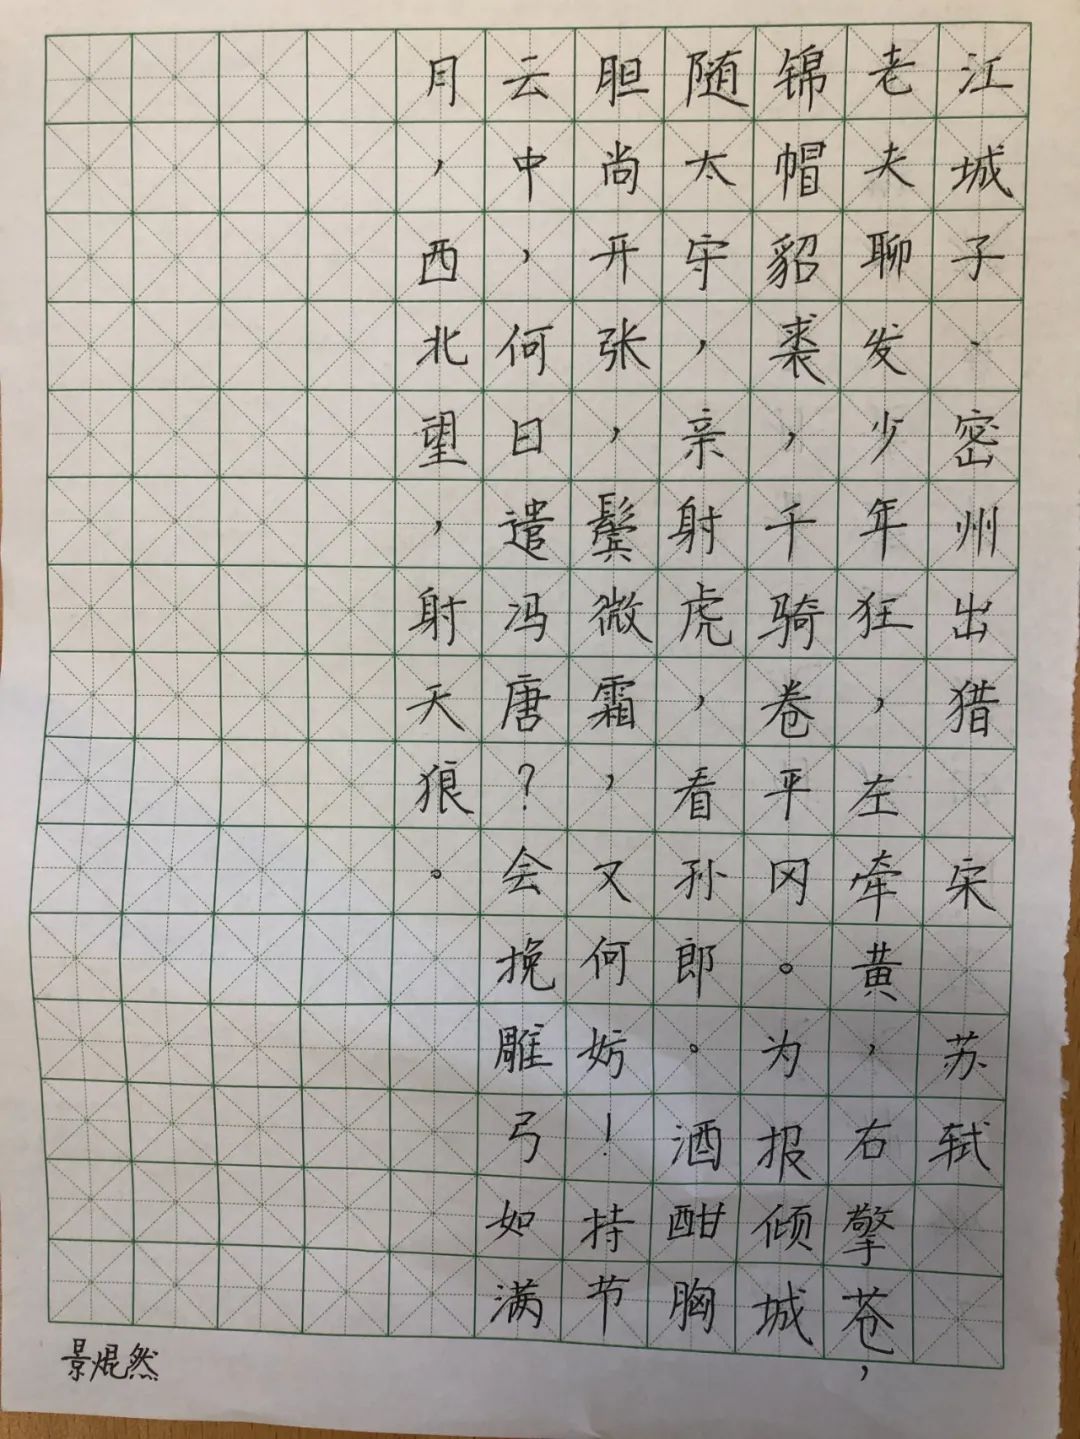 江城子·密州出猎 宋 苏轼
老夫聊发少年狂，左牵黄，右擎苍，
锦帽貂裘，千骑卷平冈。为报倾城
随太守，亲射虎，看孙郎。酒酣胸
胆尚开张，鬓微霜，又何妨！持节
云中，何日遣冯唐？会挽雕弓如满
月，西北望，射天狼。
景焜然